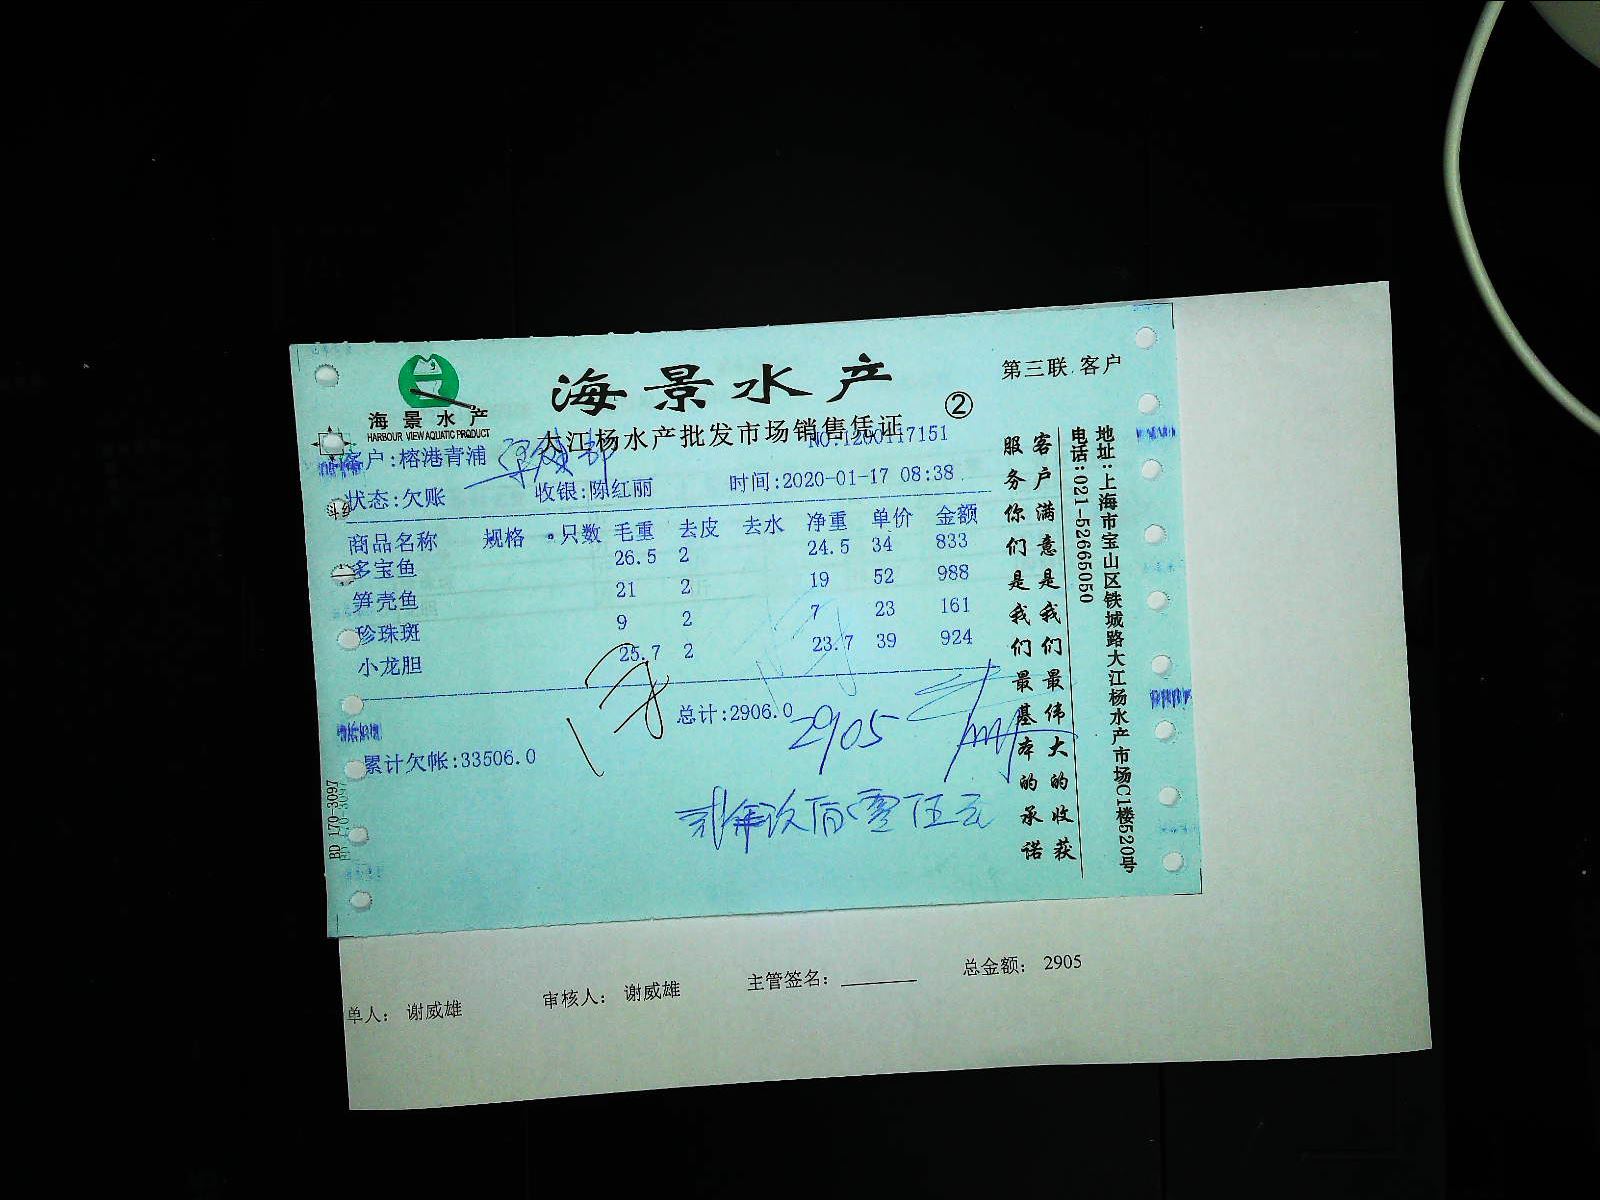 海景水产
HARBOUR VIEW AQUATIC PRODUCT
海景水产
第三联 客户
②
大江杨水产批发市场销售凭证
NO:1200117151
客户:榕港青浦
状态:欠账 收银:陈红丽 时间:2020-01-17 08:38
商品名称 规格 只数 毛重 去皮 去水 净重 单价 金额
多宝鱼 26.5 2 24.5 34 833
笋壳鱼 21 2 19 52 988
珍珠斑 9 2 7 23 161
小龙胆 25.7 2 23.7 39 924
总计:2906.0
2905
累计欠帐:33506.0
玖佰零伍元
BD 170-3097
客户满意是我们最伟大的收获
服务你们是我们最基本的承诺
地址:上海市宝山区铁城路大江杨水产市场C1楼520号
电话:021-52665050
单人: 谢威雄 审核人: 谢威雄 主管签名: 总金额: 2905